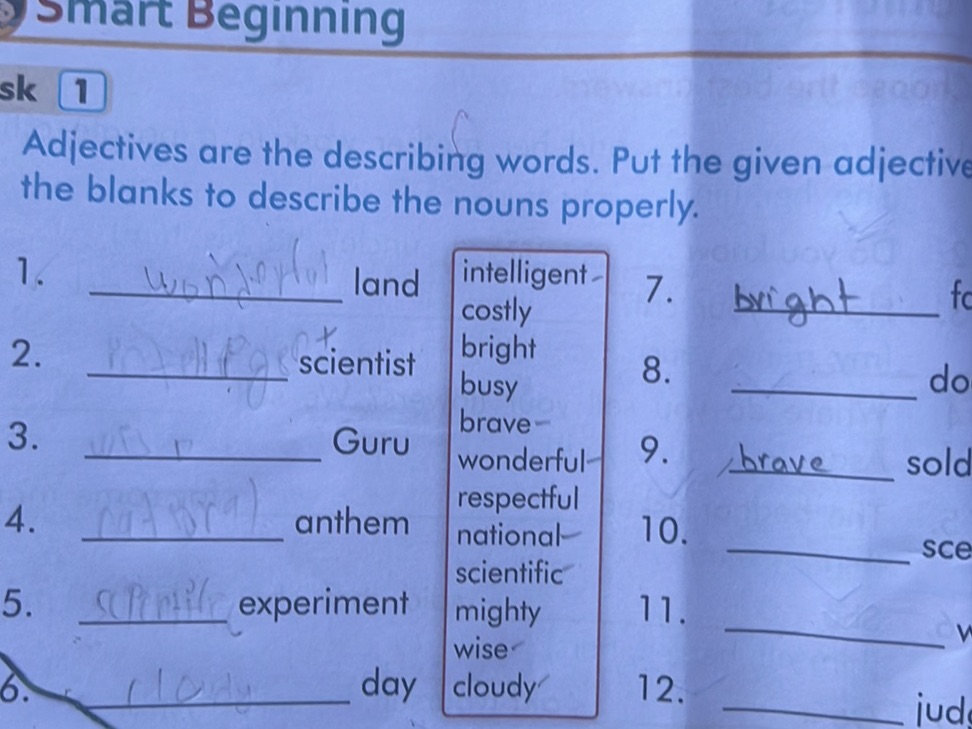 Smart Beginning
sk 1
Adjectives are the describing words. Put the given adjective
the blanks to describe the nouns properly.
1. wonderful land
2. scientist
3. Guru
4. national anthem
5. experiment
6. cloudy day
intelligent
costly
bright
busy
brave
wonderful
respectful
national
scientific
mighty
wise
cloudy
7. bright fo
8. do
9. brave sold
10. sce
11. w
12. judg